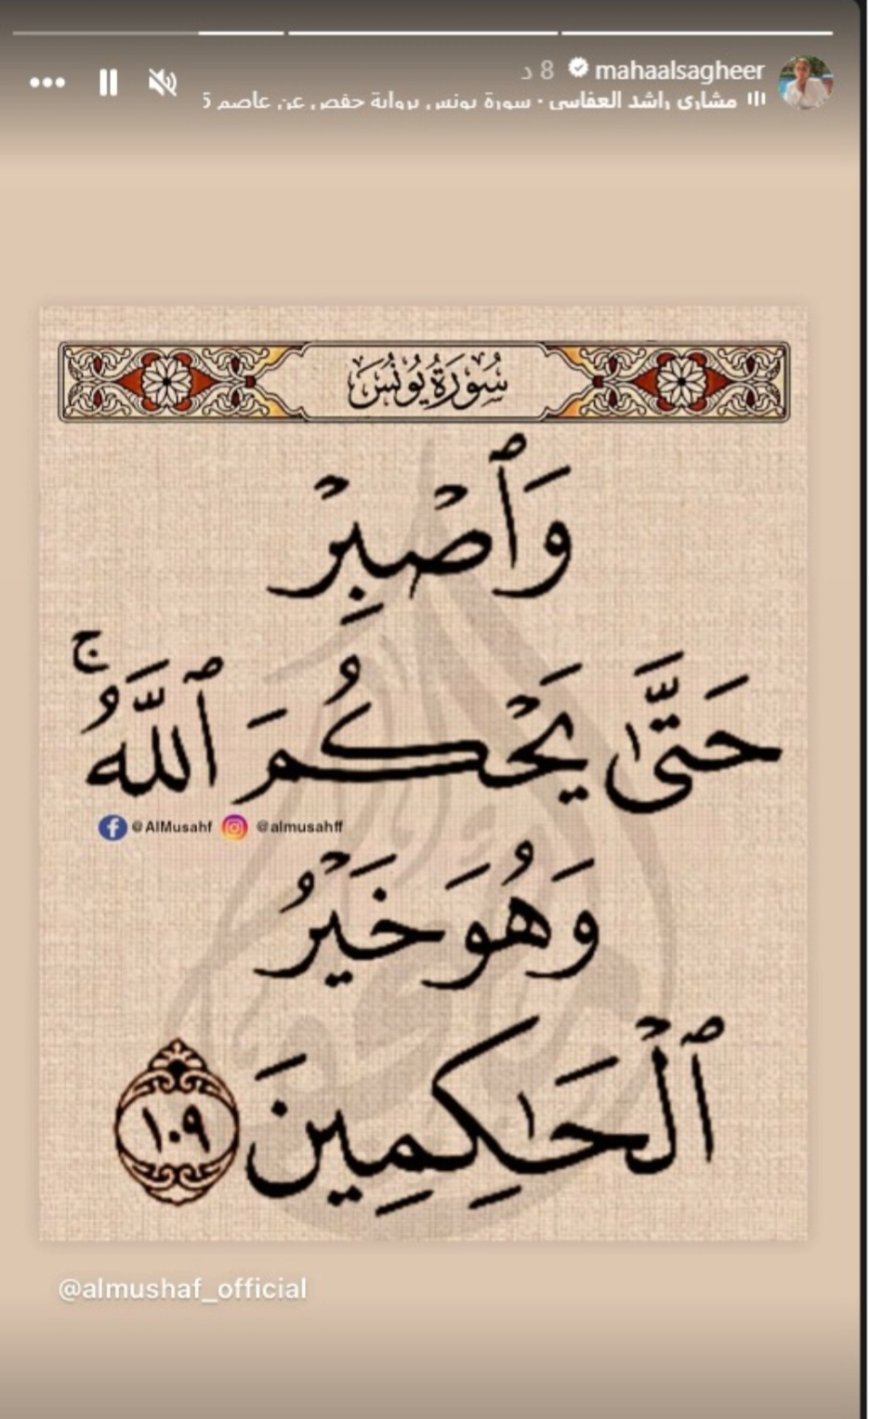 mahaalsagheer 8 د
مشاري راشد العفاسي · سورة يونس برواية حفص عن عاصم 5
سُورَةُ يُونُسَ
وَٱصْبِرْ
حَتَّىٰ يَحْكُمَ ٱللَّهُ ۚ
@AlMusahf @almusahff
وَهُوَ خَيْرُ
ٱلْحَـٰكِمِينَ ١٠٩
@almushaf_official